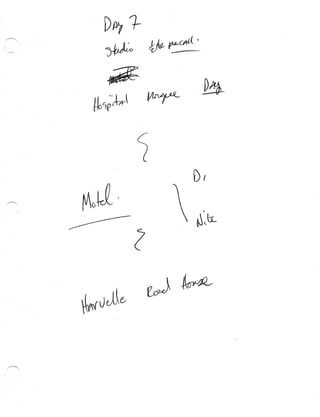 Day 7
Studio
Hospital Morgue Day
Motel.
D,
Nite
Harvelle Road House